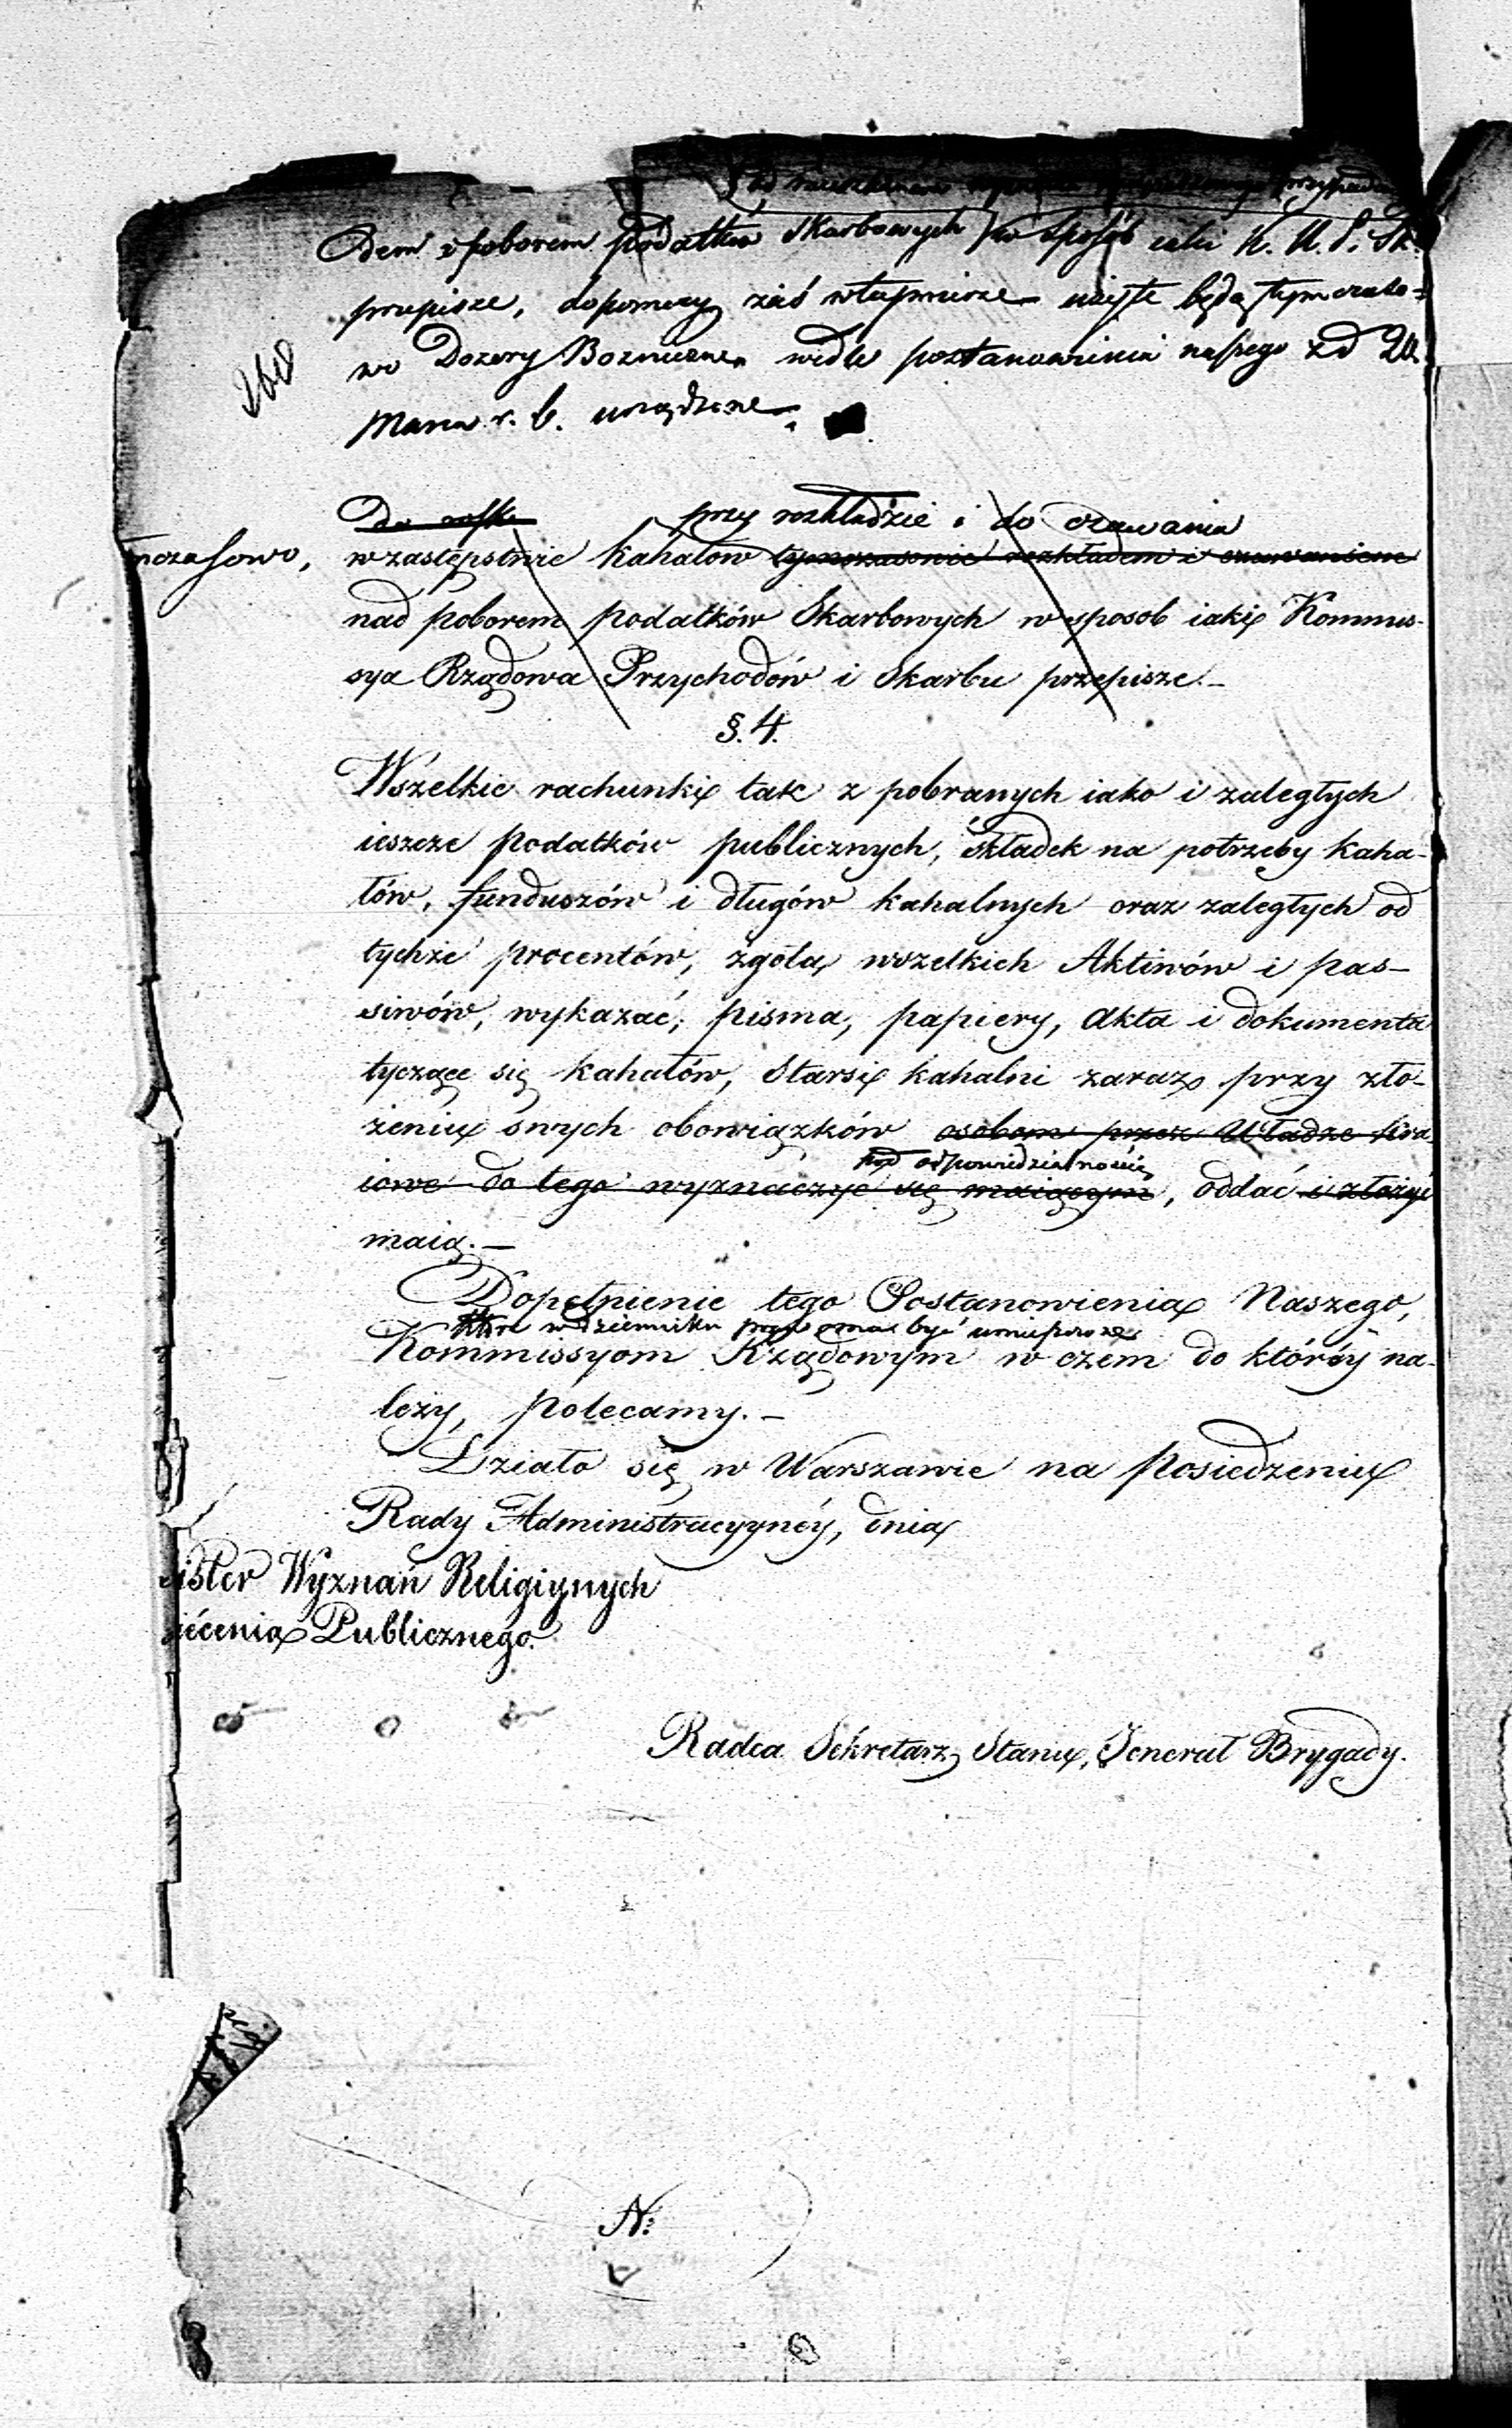 dem i poborem podatków Skarbowych w sposób iaki K. R. P. Sk.
przepisze, do pomocy zaś użyte będą tymczaso-
wo Dozory Boznicze wedle postanowienia naszego z d. 20
Marca r. b. urządzone.
268
przy rozkładzie i do czuwania
mczasowo,
w zastępstwie kahałów tymczasowie rozkładem i czuwaniem
nad poborem podatków Skarbowych w sposob iaki Kommis-
sya Rządowa Przychodów i Skarbu przepisze.—
§. 4.
Wszelkie rachunki tak z pobranych iako i zaległych
ieszcze podatków publicznych, składek na potrzeby kaha-
łów, funduszów i długów kahalnych oraz zaległych od
tychże procentów, zgoła wszelkich Aktiwów i pas-
siwów, wykazać; pisma, papiery, akta i dokumenta
tyczące się kahałów, Starsi kahalni zaraz przy zło-
żeniu swych obowiązków osobom przez Władze kra-
pod odpowiedzialnością
iowe do tego wyznaczyć się maiącym, oddać i złożyć
maią.—
Dopełnienie tego Postanowienia Naszego,
które w dzienniku praw ma być umieszczone
Kommissyom Rządowym w czém do któréy na-
leży, polecamy.—
Działo się w Warszawie na posiedzeniu
Rady Administracyynéy, dnia
ister Wyznań Religiynych
iécenia Publicznego.
Radca Sekretarz Stanu, Jenerał Brygady.
N: